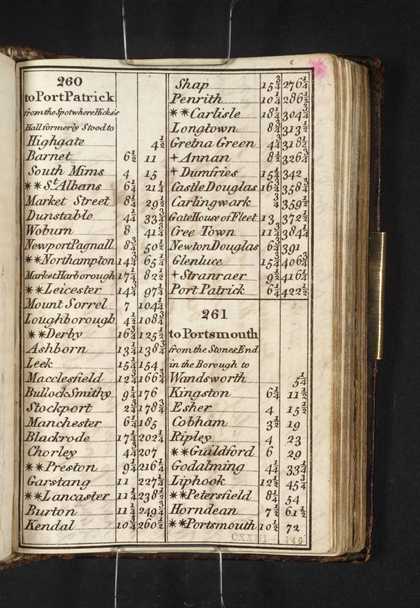 260
to Port Patrick
from the Spot where Hicks's
Hall formerly Stood to
Highgate 4½
Barnet 6½ 11
South Mims 4 15
**St. Albans 6½ 21¼
Market Street 8¼ 29½
Dunstable 4¼ 33¾
Woburn 8 41¾
Newport Pagnall 8¾ 50½
**Northampton 14¾ 65¼
Market Harborough 17¼ 82½
**Leicester 14¾ 97¼
Mount Sorrel 7 104¼
Loughborough 4½ 108¾
**Derby 16¾ 125½
Ashborn 13¼ 138¾
Leek 15¼ 154
Macclesfield 12¾ 166¾
Bullock Smithy 9¼ 176
Stockport 2¾ 178¾
Manchester 6¼ 185
Blackrode 17¼ 202¼
Chorley 4¾ 207
**Preston 9¼ 216¼
Garstang 11 227¼
**Lancaster 11¼ 238½
Burton 11 249½
Kendal 10¾ 260½
Shap 15¾ 276¼
Penrith 10¼ 286½
**Carlisle 18¼ 304¾
Longtown 8¾ 313½
Gretna Green 4¾ 318¼
+Annan 8½ 326¾
+Dumfries 15¼ 342
Castle Douglas 16¾ 358¾
Carlingwark ¾ 359½
Gate House of Fleet 13 372½
Cree Town 11¾ 384¼
Newton Douglas 6¾ 391
Glenluce 15¾ 406¾
+Stranraer 9½ 416¼
Port Patrick 6¼ 422½
261
to Portsmouth
from the Stones End
in the Borough to
Wandsworth 5¼
Kingston 6¼ 11½
Esher 4 15½
Cobham 3½ 19
Ripley 4 23
**Guildford 6 29
Godalming 4¼ 33¼
Liphook 12½ 45¾
**Petersfield 8¼ 54
Horndean 7½ 61½
**Portsmouth 10½ 72